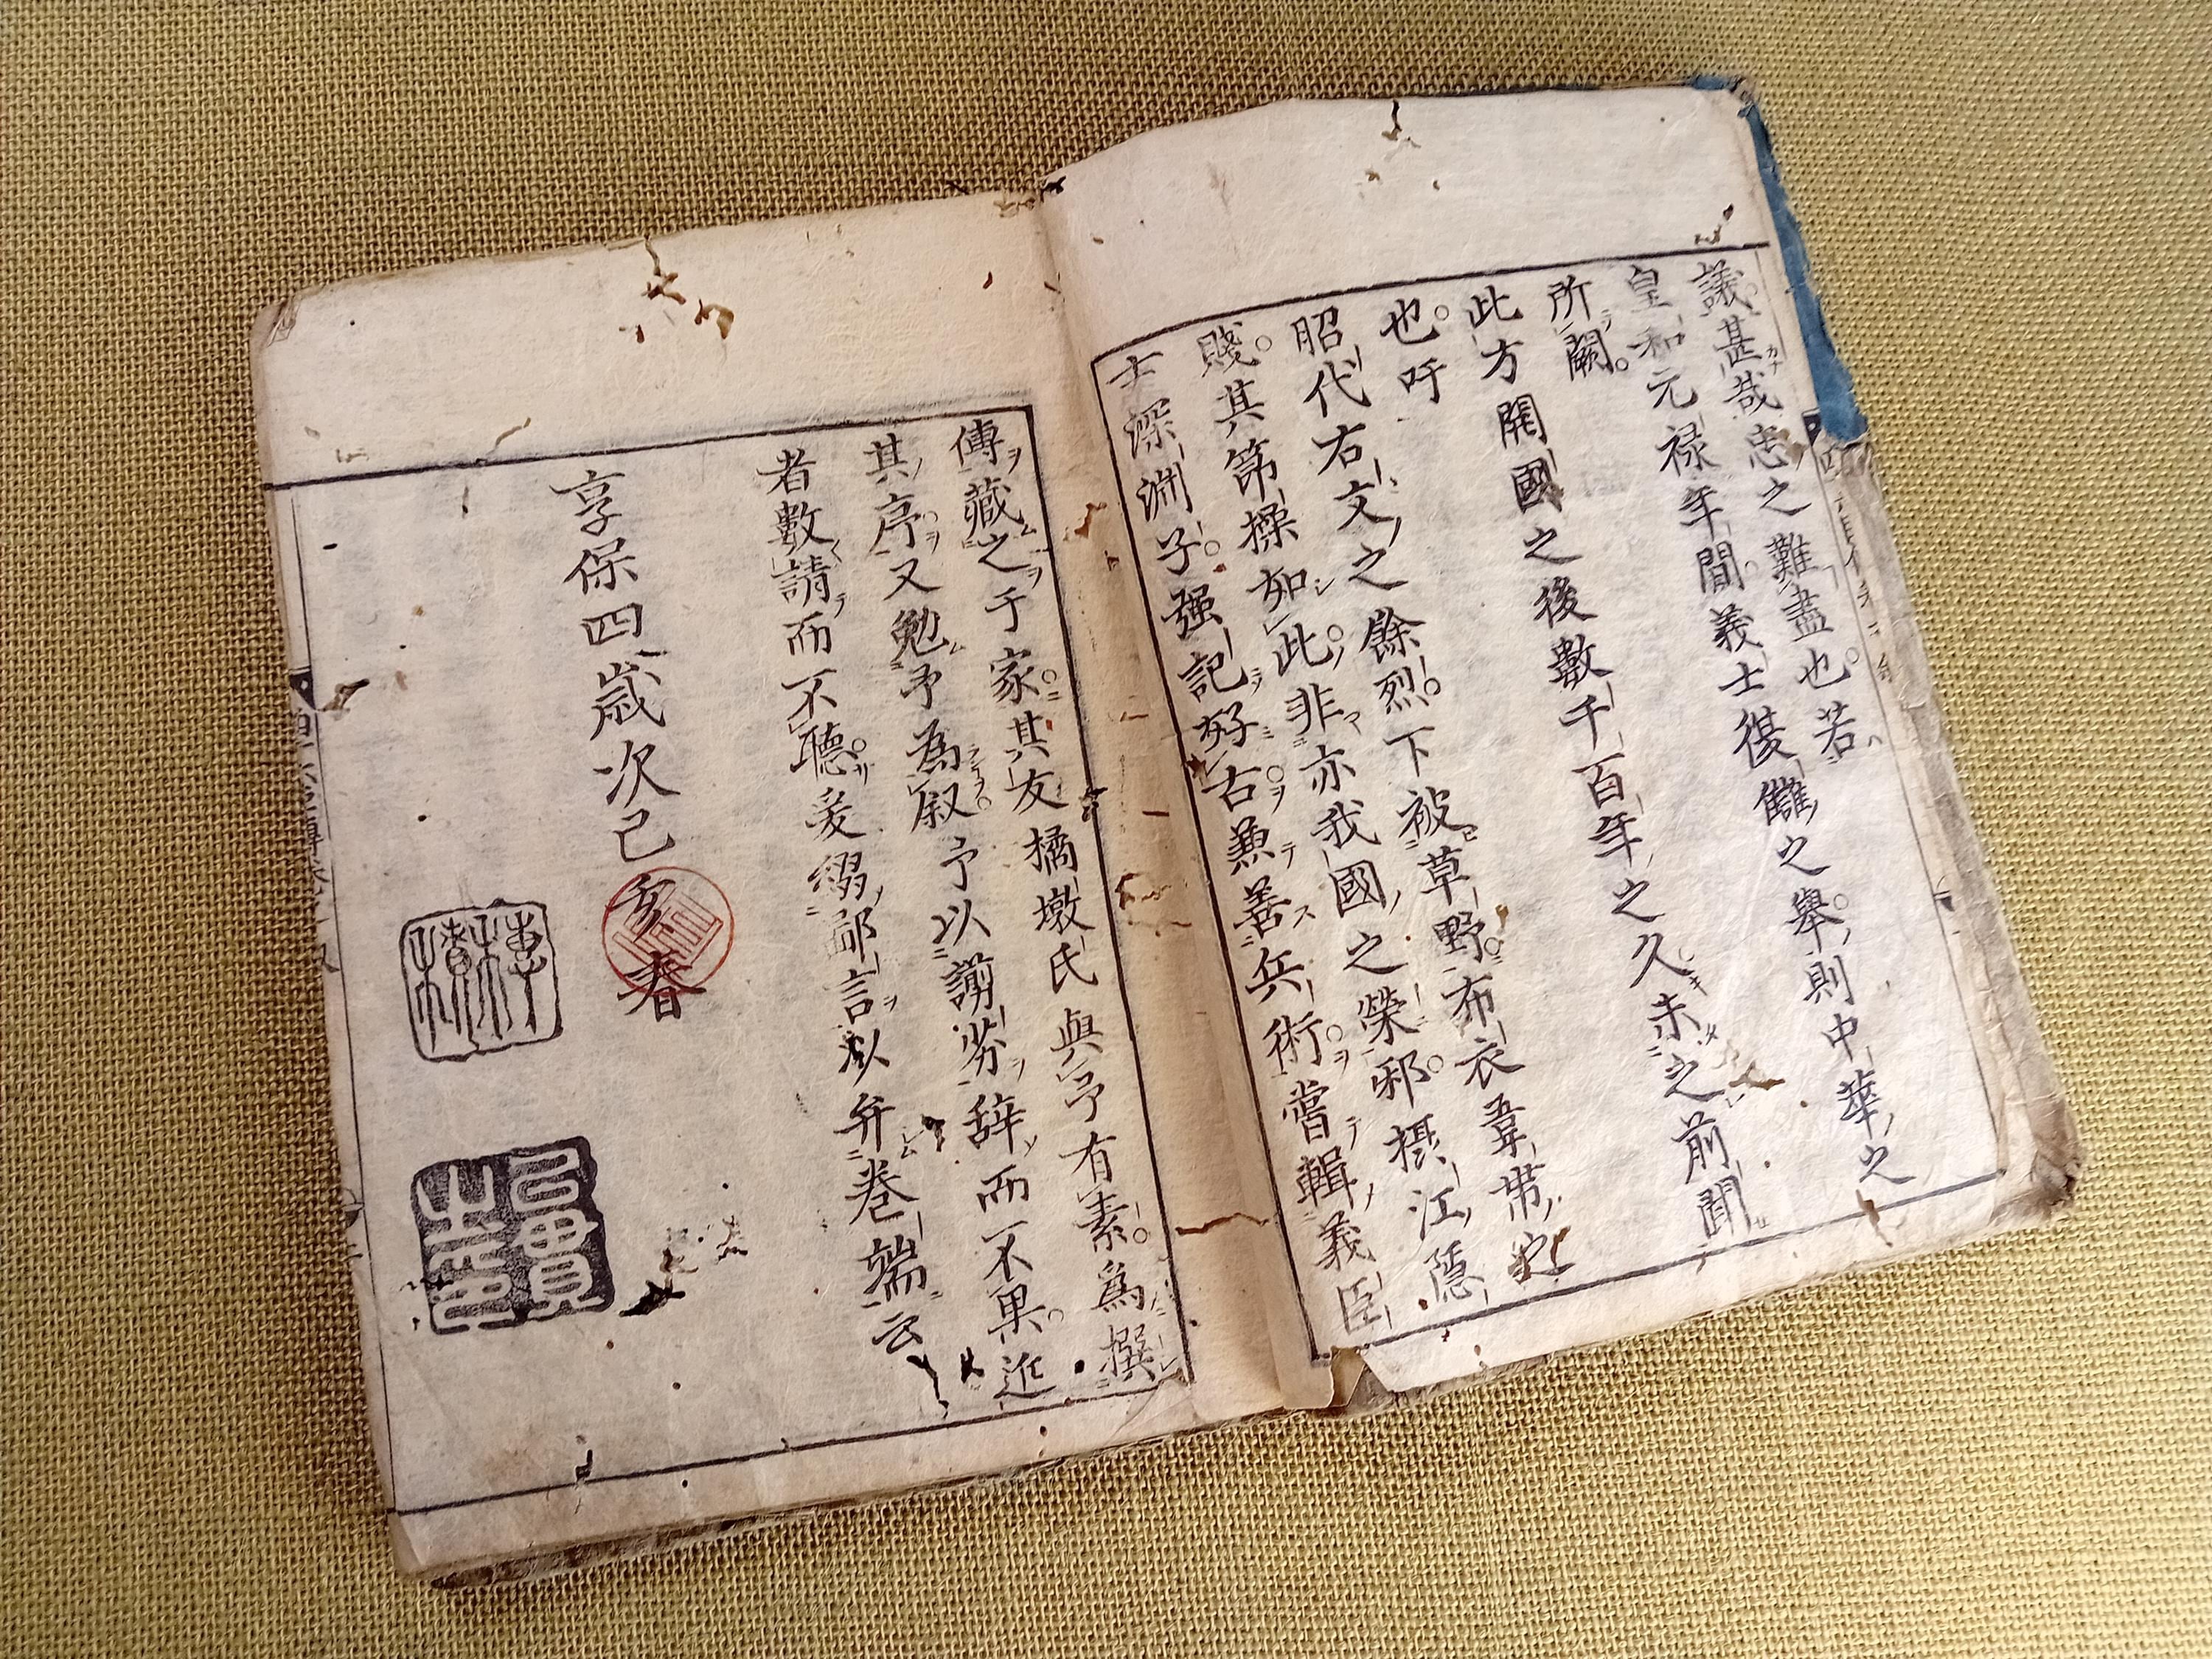 議甚哉忠之難盡也若
皇和元禄年間義士復讎之舉則中華之
所闕
此方開國之後數千百年之久未之前聞
也吁
昭代右文之餘烈下被草野布衣韋帯
賤其節操如此非亦我國之榮邪摂江隱
士深淵子强記好古兼善兵術嘗輯義臣
傳藏之于家其友橘墩氏與予有素爲撰
其序又勉予為叙予以謭劣辞而不果近
者數請而不聽爰綴鄙言以弁巻端云
享保四歳次己亥春